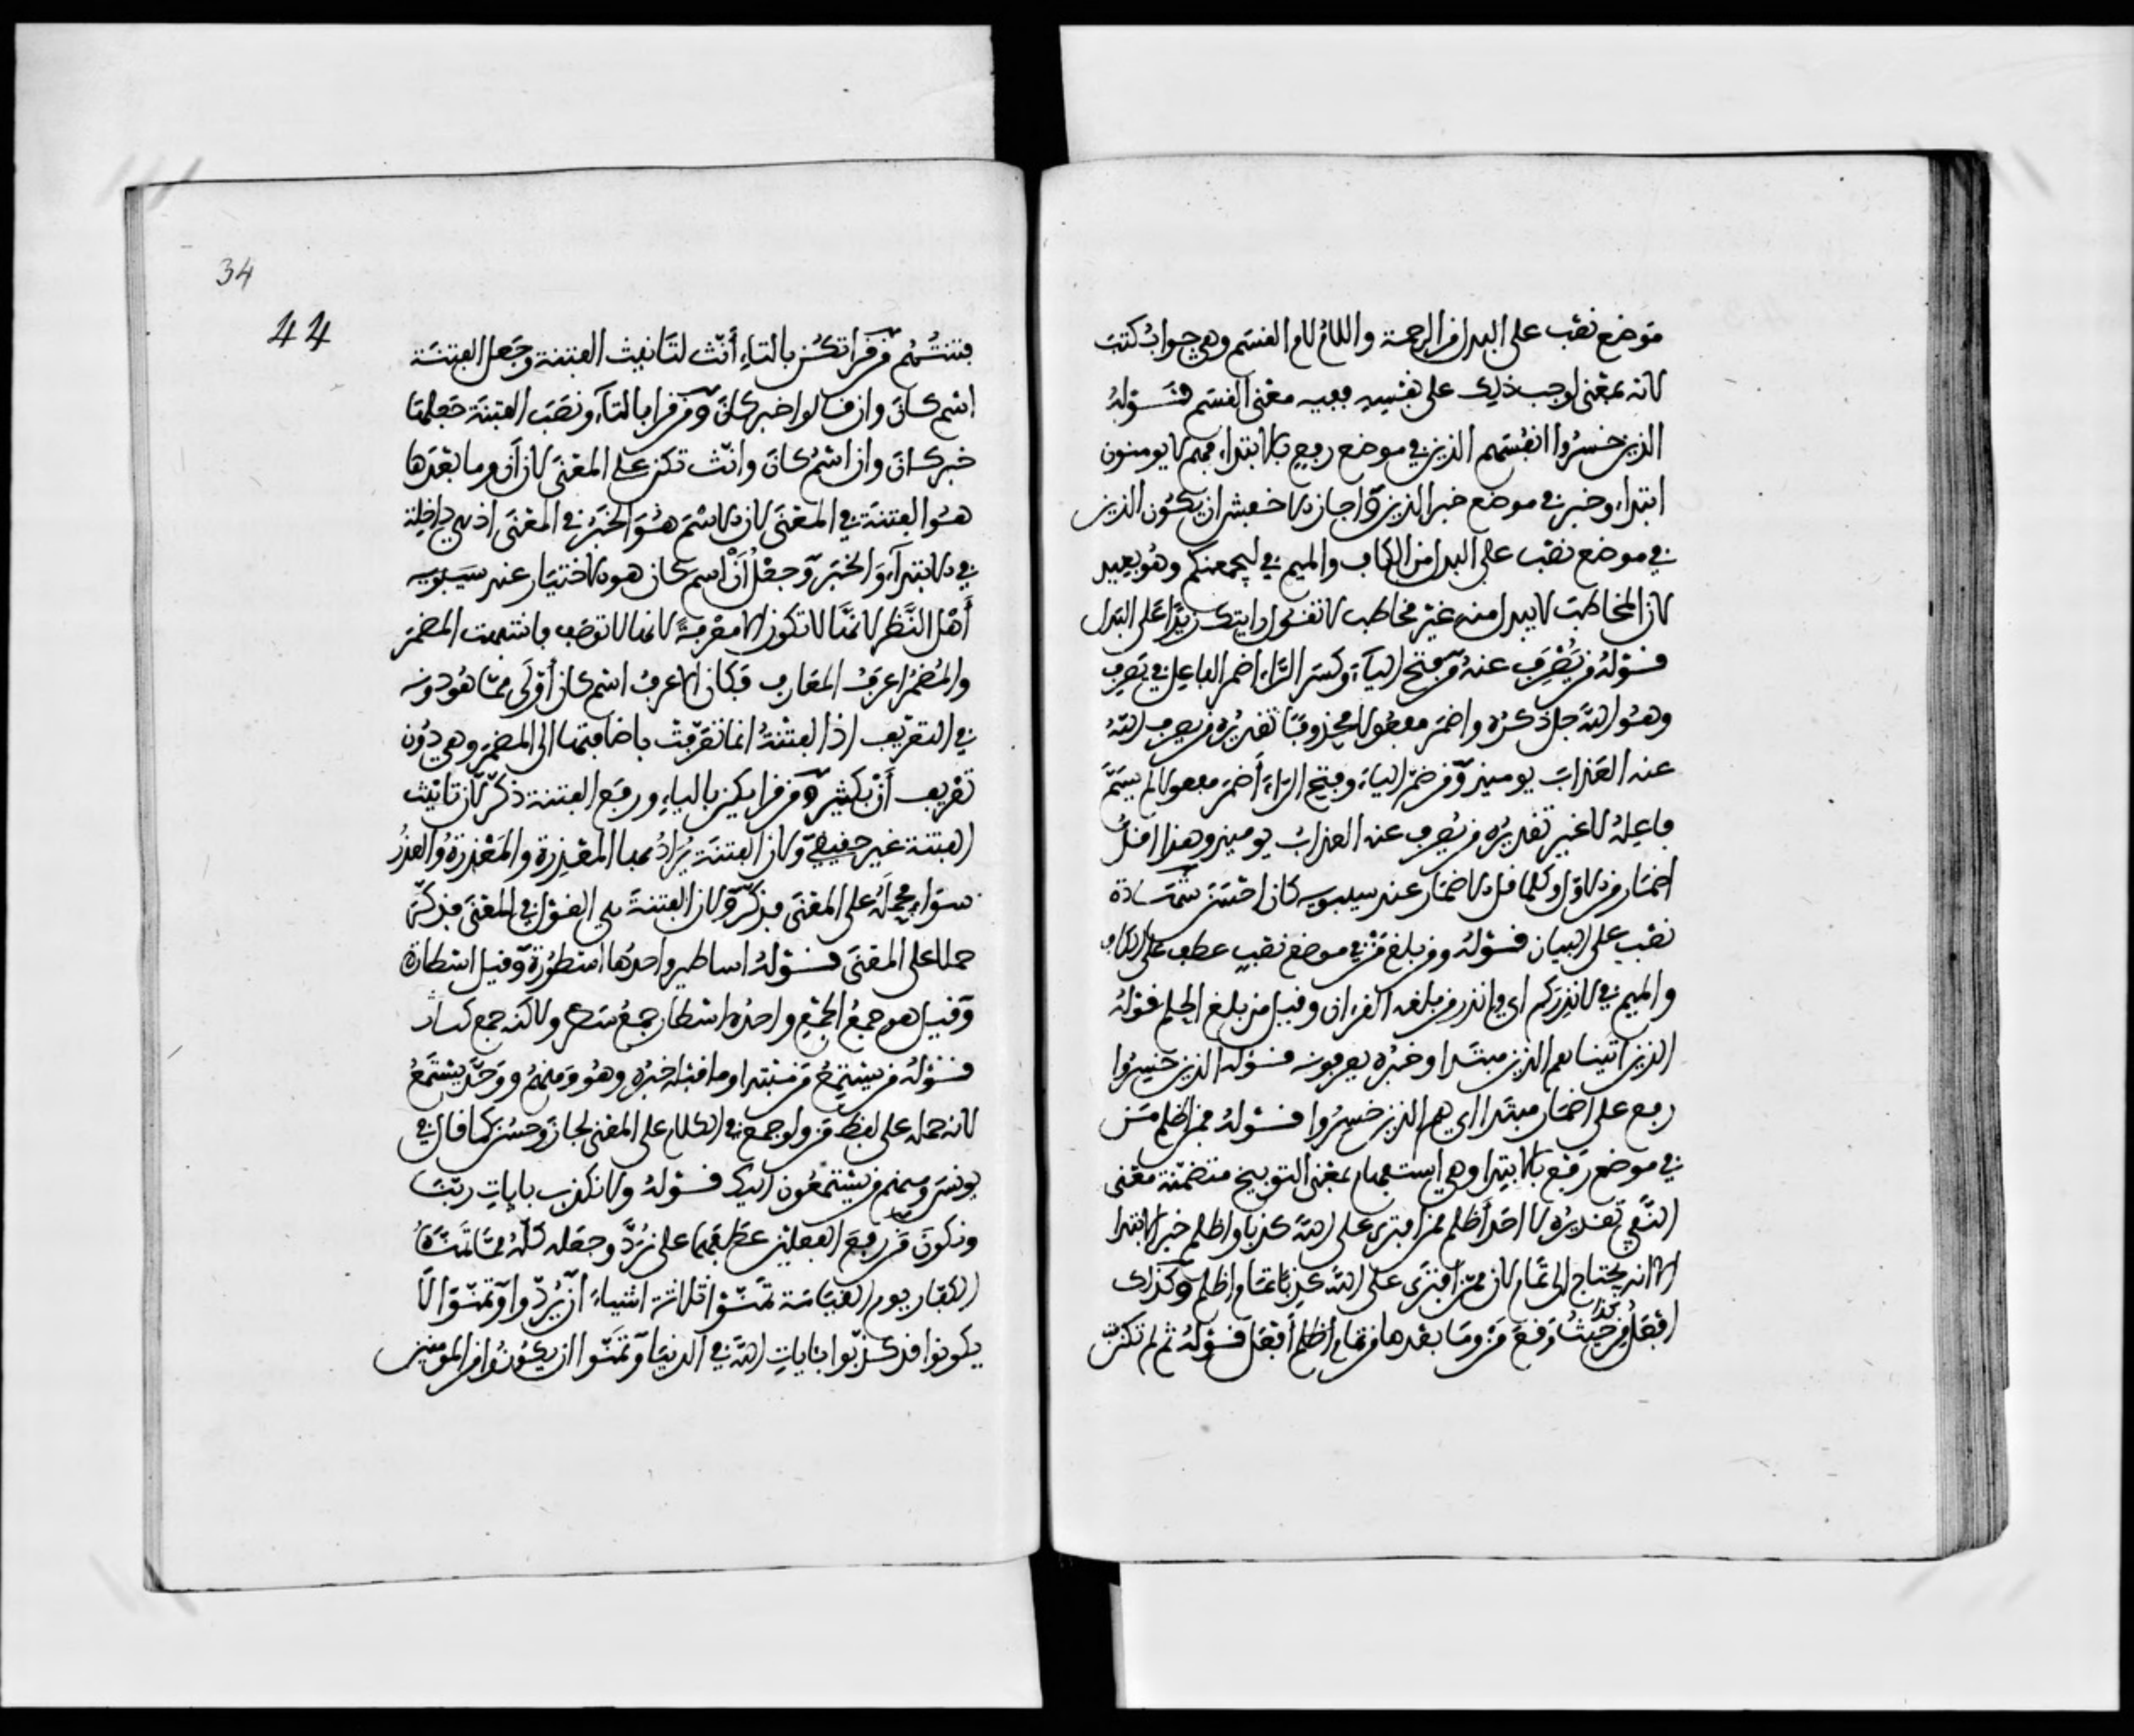 موضع نصب على البدل من الرحمة واللام لام القسم وهي جواب كتب
لانه بمعنى اوجب ذلك على نفسه ففيه معنى القسم قوله
الذين خسروا انفسهم الذين في موضع رفع بالابتداء فهم لا يومنون
ابتداء وخبر في موضع خبر الذين واجاز الاخفش ان يكون الذين
في موضع نصب على البدل من الكاف والميم في ليجمعنكم وهو بعيد
لان المخاطب لا يبدل منه غير مخاطب لا تقول رايتك زيدا على البدل
قوله من يصرف عنه من فتح الياء وكسر الراء اضمر الفاعل في يصرف
وهو الله جل ذكره واضمر مفعولا محذوفا تقديره من يصرف الله
عنه العذاب يومئذ ومن ضم الياء وفتح الراء اضمر مفعولا لم يسم
فاعله لا غير تقديره من يصرف عنه العذاب يومئذ وهذا اقل
اضمار من الاول وكلما قل الاضمار عند سيبويه كان احسن شهادة
نصب على البيان قوله ومن بلغ من في موضع نصب عطف على الكاف
والميم في لانذركم اي وانذر من بلغه القرءان وقيل من بلغ الحلم قوله
الذين اتيناهم الذين مبتدا وخبره يعرفونه قوله الذين خسروا
رفع على اضمار مبتدا اي هم الذين خسروا قوله فمن اظلم من
في موضع رفع بالابتدا وهي استفهام بمعنى التوبيخ متضمنة معنى
النفي تقديره لا احد اظلم ممن افترى على الله كذبا واظلم خبر الابتدا
الا انه يحتاج الى تمام لان ممن افترى على الله كذبا تمام اظلم وكذلك
افعل من كذا حيث وقع من وما بعدها من تمام اظلم افعل قوله ثم لم تكن
34
44
فتنتهم من قرا تكن بالتاء أنث لتانيث الفتنة وجعل الفتنة
اسم كان وان قالوا خبر كان ومن قرا بالتاء ونصب الفتنة جعلها
خبر كان وان اسم كان وانث تكن على المعنى لان أن وما بعدها
هو الفتنة في المعنى لان الاسم هو الخبر في المعنى اذ هي داخلة
في الابتداء والخبر وجعل أن اسم كان هو الاختيار عند سيبويه
أهل النظر لانها لا تكون الا معرفة لانها لا توصف فاشبهت المضمر
والمضمر اعرف المعارف فكان الاعرف اسم كان أولى مما هو دونه
في التعريف اذ الفتنة انما تعرفت باضافتها الى المضمر وهي دون
تعريف أن بكثير ومن قرا يكن بالياء ورفع الفتنة ذكر لان تانيث
الفتنة غير حقيقي ولان الفتنة يراد بها المعذرة والمعذرة والعذر
سواء فحمله على المعنى فذكر ولان الفتنة هي القول في المعنى فذكر
حملا على المعنى قوله اساطير واحدها اسطورة وقيل اسطارة
وقيل هو جمع الجمع واحده اسطار جمع سطر ولاكنه جمع
قوله من يستمع من مبتدا وما قبله خبره وهو ومنهم ووحد يستمع
لانه حمله على لفظ من ولو جمع في الكلام على المعنى لجاز وحسن كما قال في
يونس ومنهم من يستمعون اليك قوله ولا نكذب بايات ربنا
ونكون من رفع الفعلين عطفهما على نرد وجعله كله مما تمناه
الكفار يوم القيامة تمنوا ثلاثة اشياء أن يردوا وتمنوا الا
يكونوا قد كذبوا بايات الله في الدنيا وتمنوا ان يكونوا من المومنين